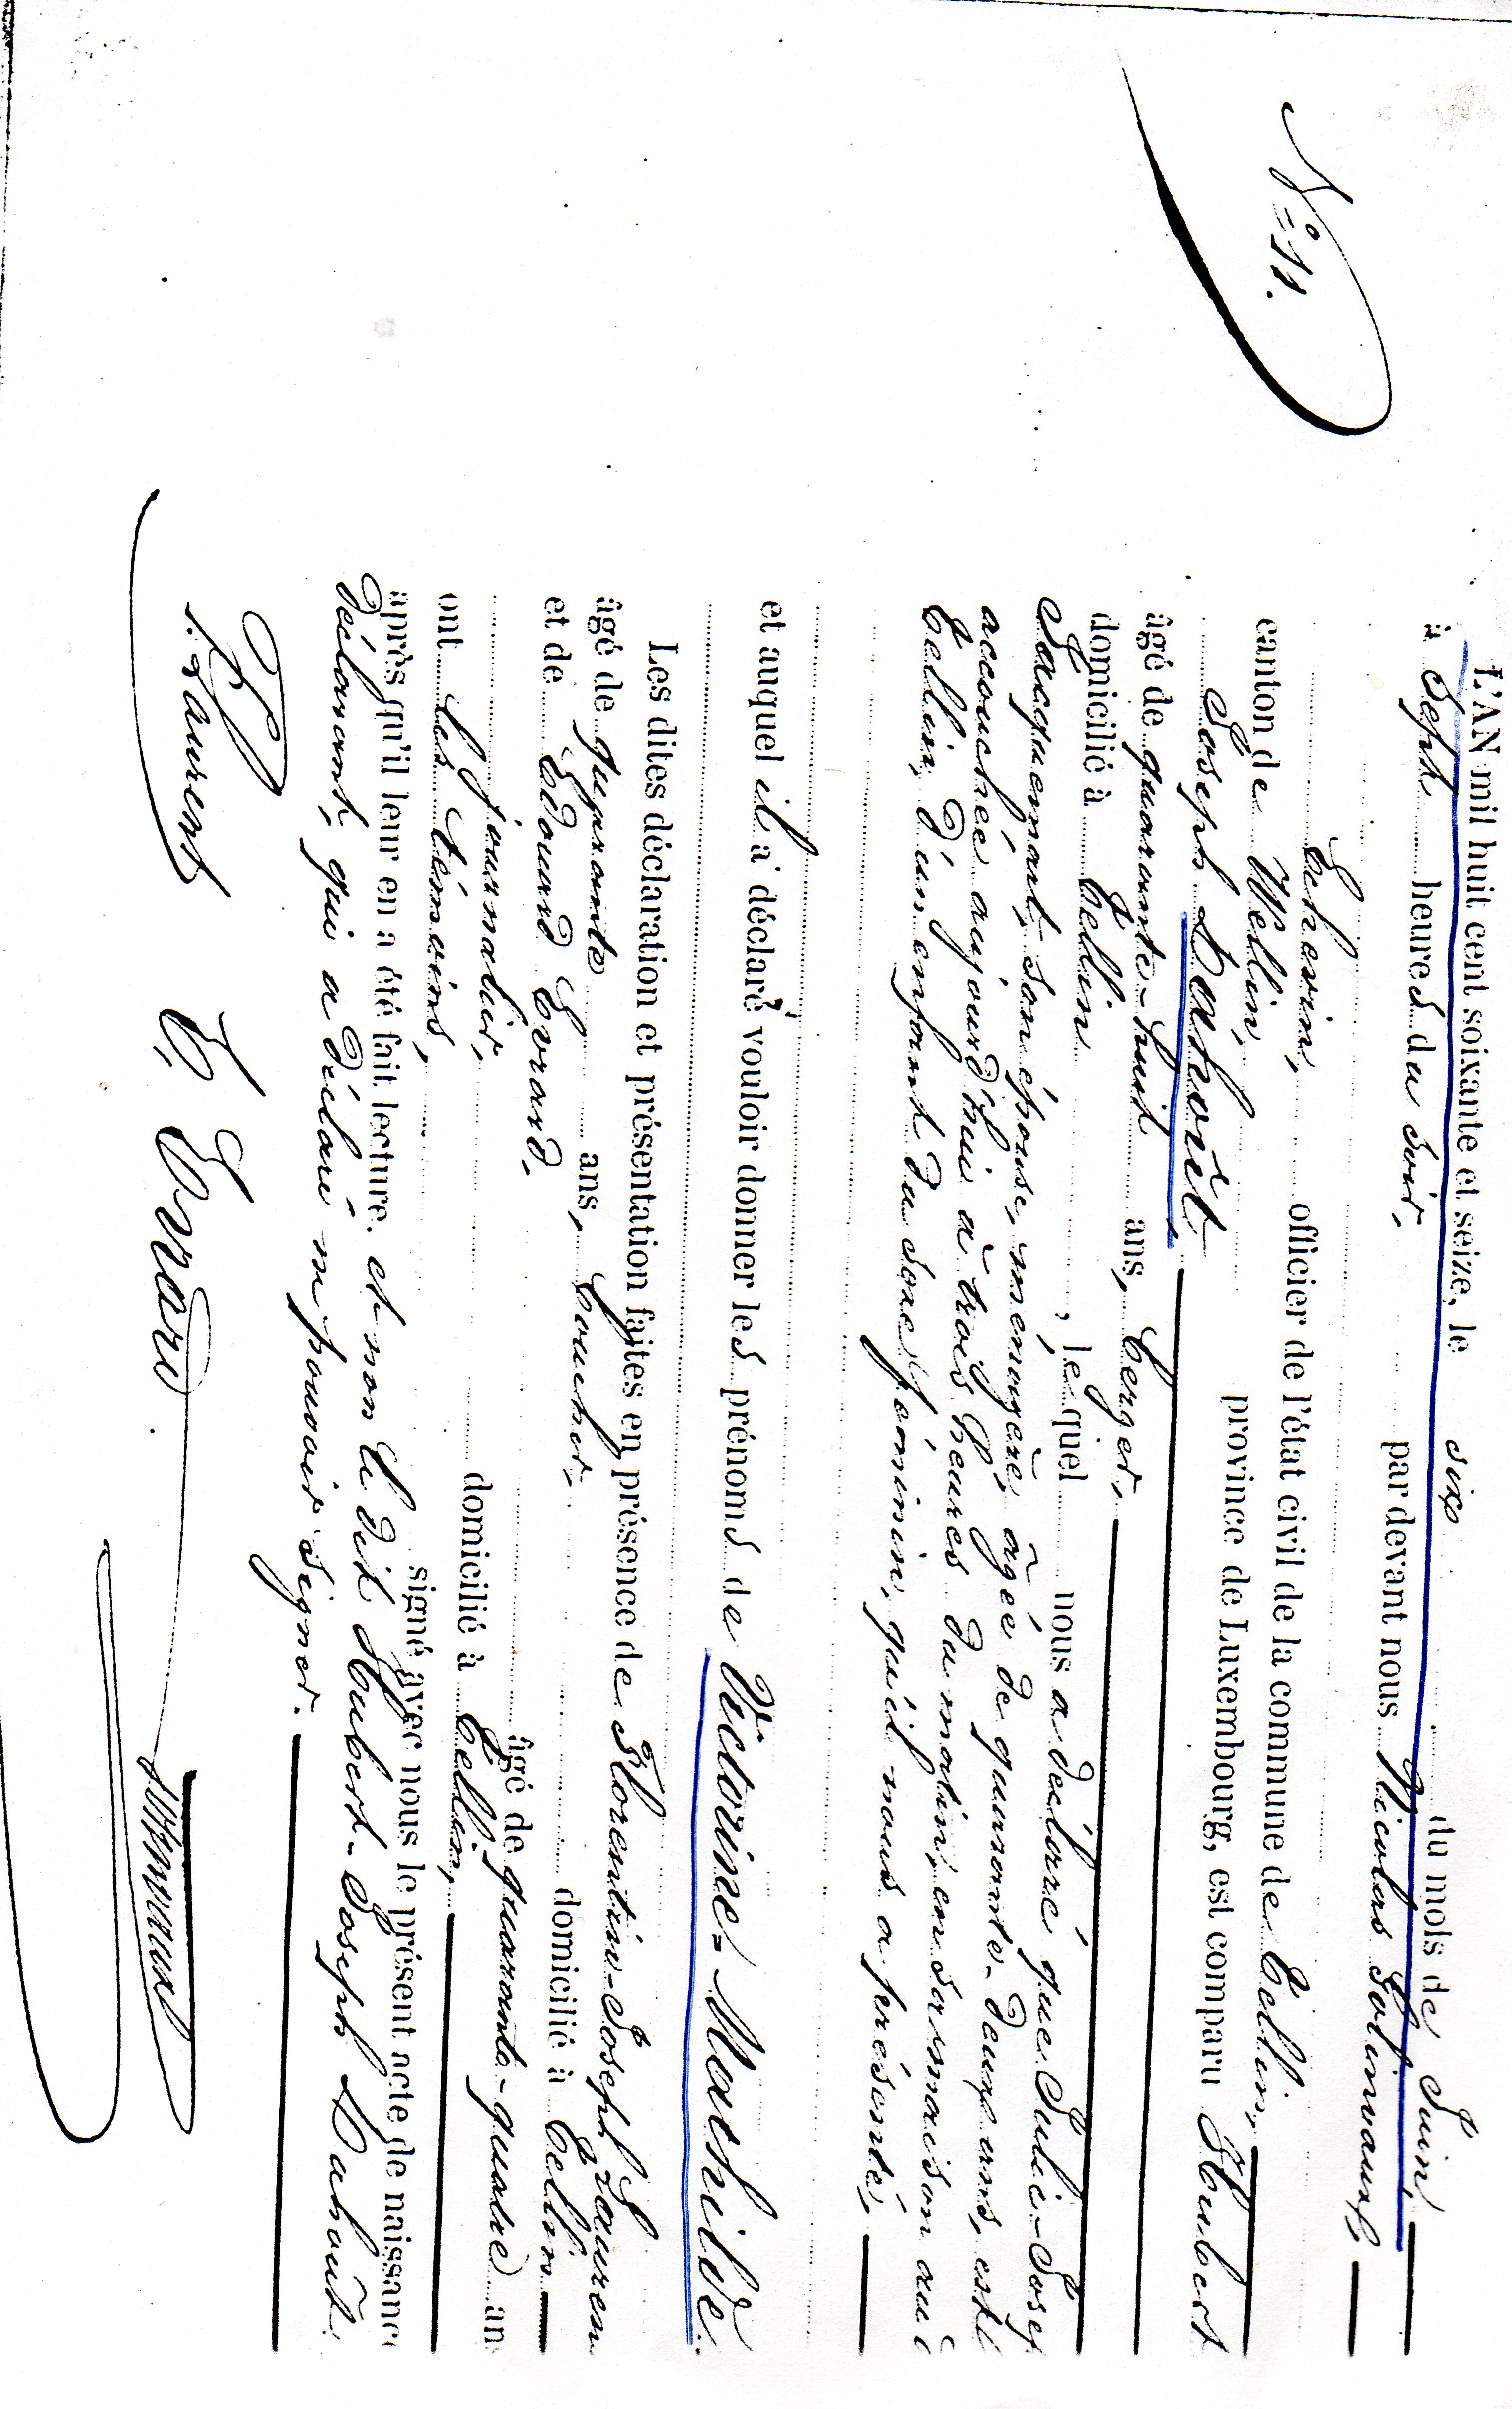 N° 11.
L'AN mil huit cent soixante et seize, le six du mois de Juin,
à Sept heures du soir, par devant nous Nicolas
Echevin, officier de l'état civil de la commune de Tellin,
canton de Wellin, province de Luxembourg, est comparu Hubert
Joseph Dahoût,
âgé de quarante-huit ans, berger,
domicilié à Tellin, lequel nous a déclaré que Julie-Josep
Jacquemart, son épouse, ménagère, âgée de quarante-deux ans, est
accouchée aujourd'hui à trois heures du matin, en sa maison au d
Tellin, d'un enfant du sexe féminin, qu'il nous a présenté,
et auquel il a déclaré vouloir donner les prénoms de Victorine-Mathilde.
Les dites déclaration et présentation faites en présence de Florentin-Joseph Lauren
âgé de quarante ans, boucher, domicilié à Tellin
et de Edouard Evrard, âgé de quarante-quatre an
journalier, domicilié à Tellin,
ont les témoins, signé avec nous le présent acte de naissance
après qu'il leur en a été fait lecture. et non le dit Hubert-Joseph Dahoût.
déclarant, qui a déclaré ne pouvoir signer.
F. J. Laurent E. Evrard